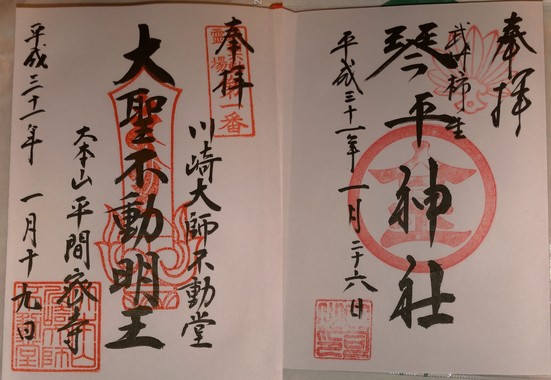 奉拝
武州柿生
琴平神社
平成三十一年一月二十六日
金
奉拝
霊場
第一番
川崎大師不動堂
大聖不動明王
大本山平間寺
平成三十一年一月十九日